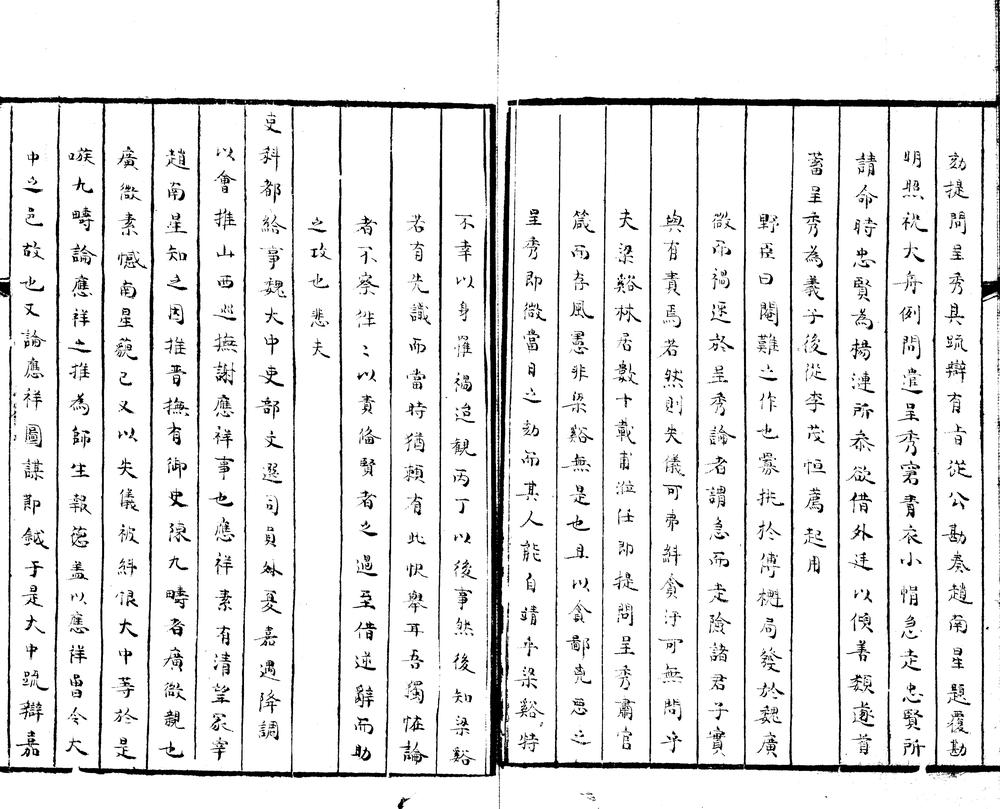 劾提問呈秀具疏辯有旨從公勘奏趙南星題覆勘
明照祝大舟例問遣呈秀窘青衣小帽急走忠賢所
請命時忠賢為楊漣所參欲借外廷以傾善類遂首
蓄呈秀為義子後從李茂恒薦起用
野臣曰閹難之作也釁挑於傅櫆局發於魏廣
微而禍逐於呈秀論者謂急而走險諸君子實
與有責焉若然則失儀可弗糾貪汙可無問乎
夫梁谿林居數十載甫涖任即提問呈秀肅官
箴而存風憲非梁谿無是也且以貪鄙兇惡之
呈秀即微當日之劾而其人能自靖乎梁谿特
不幸以身罹禍迨觀丙丁以後事然後知梁谿
若有先識而當時猶賴有此快舉耳吾獨恠論
者不察徃〻以責俻賢者之過至借逆辭而助
之攻也悲夫
吏科都給事魏大中吏部文選司員外夏嘉遇降調
以會推山西巡撫謝應祥事也應祥素有清望冢宰
趙南星知之因推晋撫有御史陳九疇者廣微親也
廣微素憾南星藐己又以失儀被糾恨大中等於是
嗾九疇論應祥之推為師生報德盖以應祥曾令大
中之邑故也又論應祥圖謀即鉞于是大中疏辯嘉